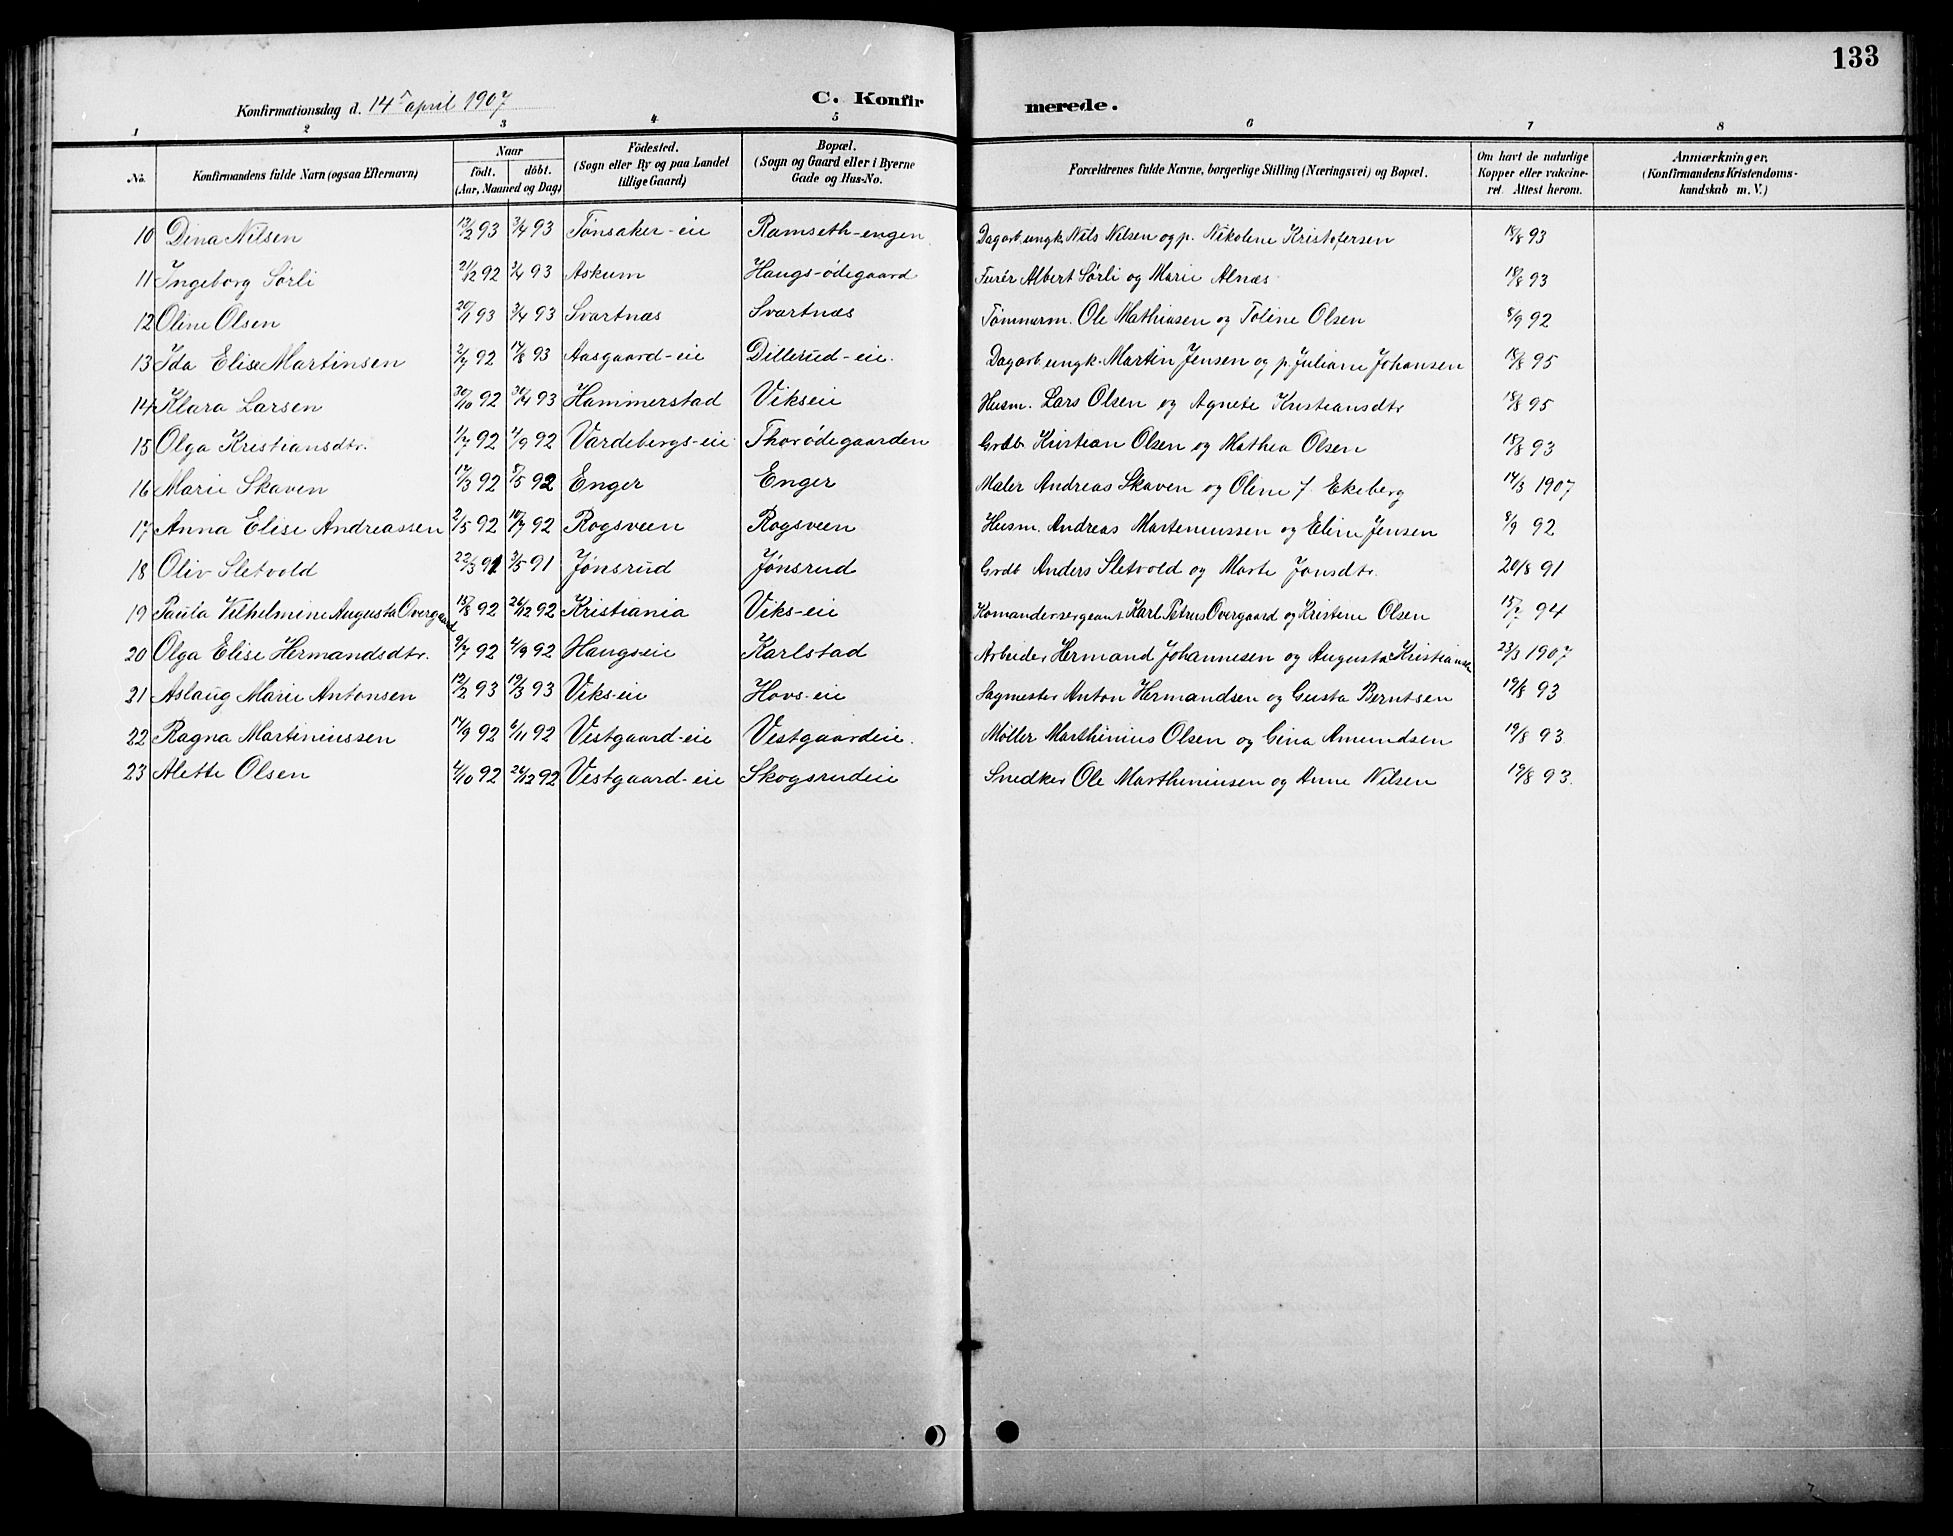 133
Konfirmationsdag d. 14de april 1907
C. Konfir merede.
1 2 3 4 5 6 7 8
No. Konfirmandens fulde Navn (ogsaa Efternavn) Naar födt. döbt. (Aar, Maaned og Dag) Födested. (Sogn eller By og paa Landet tillige Gaard) Bopæl. (Sogn og Gaard eller i Byerne Gade og Hus-No. Forældrenes fulde Navne, borgerlige Stilling (Næringsvei) og Bopæl. Om havt de naturlige Kopper eller vakcineret. Attest herom. Anmærkninger. (Konfirmandens Kristendomskundskab m. V.)
10 Dina Nilsen 12/2 93 3/4 93 Tønsaker-eie Ramseth-engen Dagarb. ungk. Nils Nilsen og p. Nikoline Kristofersen 18/8 93
11 Ingeborg Sørli 21/12 92 3/4 93 Askum Haugs-ødegaard Furér Albert Sørli og Marie Alnæs 18/8 93
12 Oline Olsen 20/1 93 3/4 93 Svartnæs Svartnæs Tømmerm. Ole Mathiasen og Toline Olsen 8/9 92
13 Ida Elise Martinsen 3/7 92 17/8 93 Aasgaard-eie Dillerud-eie. Dagarb. ungk. Martin Jensen og p. Juliane Johansen 18/8 95
14 Klara Larsen 30/10 92 30/4 93 Hammerstad Vikseie Husm. Lars Olsen og Agnete Kristiansdtr 18/8 95
15 Olga Kristiansdtr. 1/7 92 4/9 92 Vardebergs-eie Thorødegaarden Grdb. Kristian Olsen og Mathea Olsen 18/8 93
16 Marie Skaven 17/3 92 8/5 92 Enger Enger Maler Andreas Skaven og Oline f. Ekeberg 14/3 1907
17 Anna Elise Andreassen 2/5 92 10/7 92 Rogsveen Rogsveen Husm. Andreas Martenussen og Eline Jensen 9/9 92
18 Oliv Sletvold 22/3 91 3/5 91 Jønsrud Jønsrud Grdb Anders Sletvold og Marte Jonsdtr. 20/8 91
19 Paula Vilhelmine Augusta Overgaard 15/8 92 26/12 92 Kristiania Viks-eie Komandersergeant Karl Petrus Overgaard og Kristine Olsen 15/7 94
20 Olga Elise Hermandsdtr. 9/7 92 4/9 92 Haugs-eie Karlstad Arbeider Hermand Johannesen og Augusta 23/3 1907
21 Aslaug Marie Antonsen 12/2 93 19/3 93 Viks-eie Hovs-eie Sagmester Anton Hermandsen og Gusta Berntsen 19/8 93
22 Ragna Martiniussen 14/9 92 6/11 92 Vestgaard-eie Vestgaardeie. Møller Marthinius Olsen og Gina Amundsen 19/8 93
23 Alette Olsen 4/10 92 26/12 92 Vestgaard-eie Skogsrudeie Snedker Ole Marthiniusen og Anne Nilsen 19/8 93.